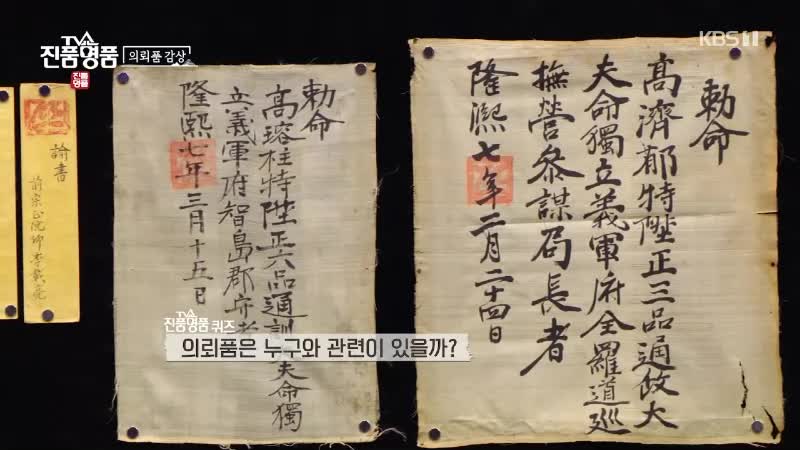 TV쇼
진품명품
의뢰품 감상
진품명품
KBS1
勅命
高濟 特陞正三品通政大
夫命獨立義軍府全羅道巡
撫營參謀局長者
隆熙七年二月二十四日
勅命
高瑢柱特陞正六品通訓 夫命獨
立義軍府智島郡守
隆熙七年三月十五日
諭書
前宗正院卿李載
TV쇼
진품명품 퀴즈
의뢰품은 누구와 관련이 있을까?